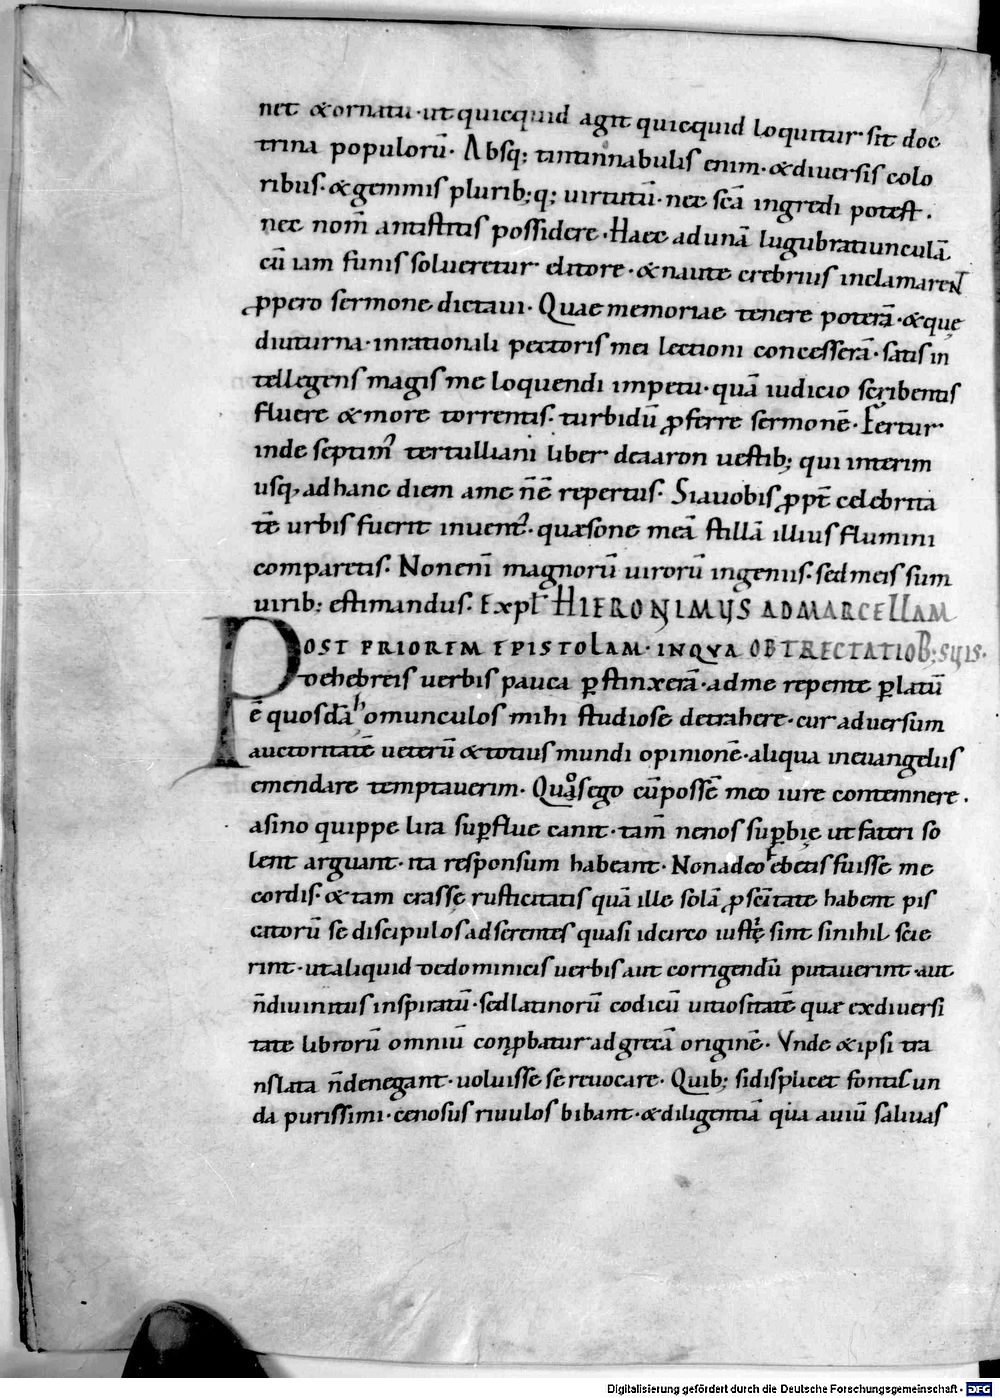 net & ornatu · ut quicquid agit quicquid loquitur · sit doc
trina populorū · Absq; tintinnabulis enim · & diuersis colo
ribus · & gemmis plurib;q; uirtutū · nec scā ingredi potest ·
nec nom̄ antistitis possidere · Haec ad unā lugubratiunculā
cū iam funis solueretur e litore · & nautę crebrius inclamarent
ꝓpero sermone dictaui · Quae memoriae tenere poterā · & quę
diuturna · in rationali pectoris mei lectioni concesserā · satis in
tellegens magis me loquendi impetu · quā iudicio scribentis
fluere & more torrentis · turbidū ꝓferre sermonē · Fertur
inde septim᾽ tertulliani liber de aaron uestib; qui interim
usq; ad hanc diem a me n̄ ē repertus · Si a uobis ꝓpt̄ celebrita
tē urbis fuerit inuent᾽ · quæso ne meā stillā illius flumini
comparetis · Non enī magnorū uirorū ingeniis · sed meis sum
uirib; estimandus · Expl̄ HIERONIMUS AD MARCELLAM
POST PRIOREM EPISTOLAM · IN QVA OBTRECTATIOB; SUIS ·
de hebreis uerbis pauca p̱stinxerā · ad me repente p̱latū
ē quosdā homunculos mihi studiose detrahere · cur aduersum
auctoritatē ueterū & totius mundi opinionē · aliqua in euangeliis
emendare temptauerim · Quos ego cū possē meo iure contemnere ·
asino quippe lira sup̱flue canit · tam̄ ne nos sup̱bię ut fateri so
lent arguant · ita responsum habeant · Non adeo hebetis fuisse me
cordis · & tam crassę rusticitatis quā ille solā ꝓ scītate habent pis
catorū se discipulos adserentes quasi idcirco iusti sint si nihil scie
rint · ut aliquid de dominicis uerbis aut corrigendū putauerint · aut
n̄ diuinitus inspiratū · sed latinorū codicū uitiositatē quæ ex diuersi
tate librorū omniū conꝓbatur ad grecā originē · Vnde & ipsi tra
nslata n̄ denegant · uoluisse se reuocare · Quib; si displicet fontis un
da purissimi · cenosus riuulos bibant · & diligentiā qua auiū saliuas
Digitalisierung gefördert durch die Deutsche Forschungsgemeinschaft - DFG